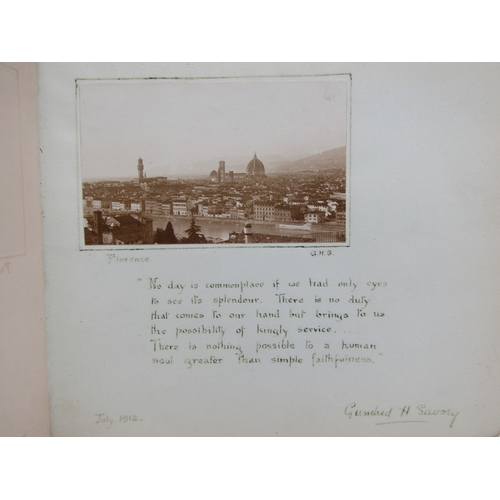 Florence. G.H.S.
"No day is commonplace if we had only eyes
to see its splendour. There is no duty
that comes to our hand but brings to us
the possibility of kingly service....
There is nothing possible to a human
soul greater than simple faithfulness."
July. 1912. Gundred H Savory